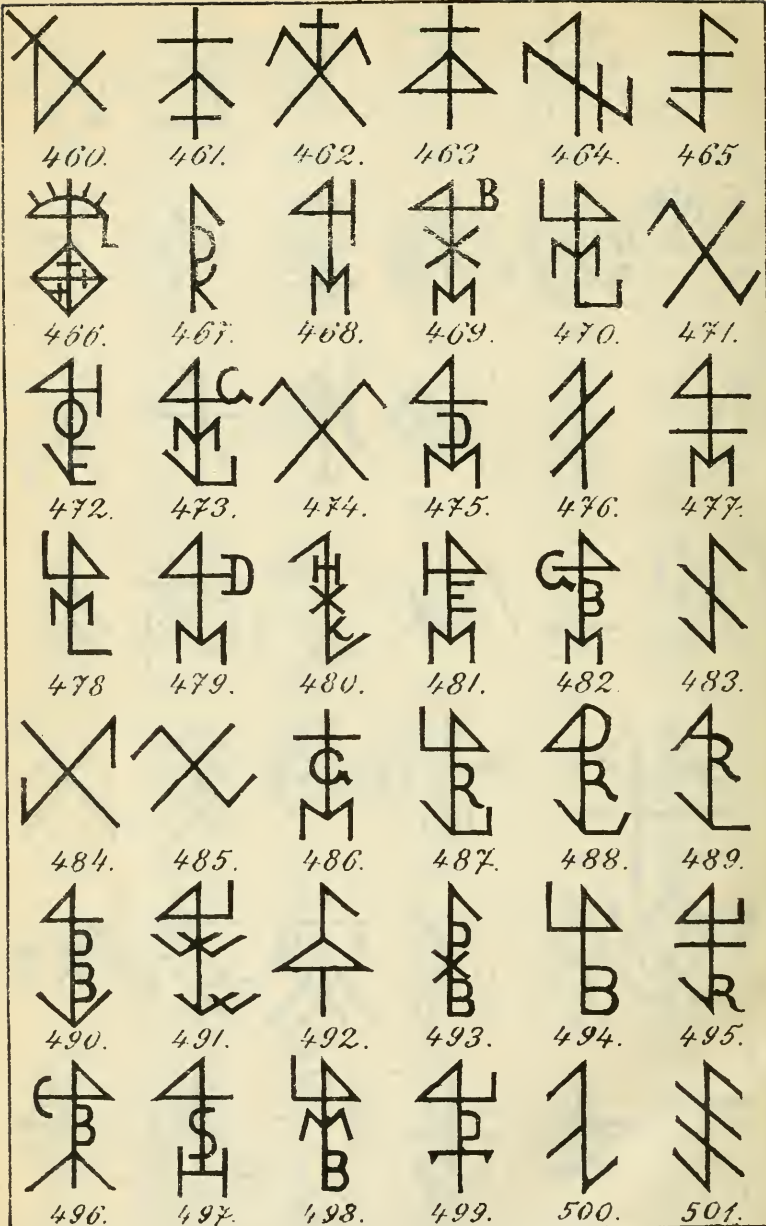 460. 461. 462. 463 464. 465
466. 467. 468. 469. 470. 471.
472. 473. 474. 475. 476. 477.
478 479. 480. 481. 482 483.
484. 485. 486. 487. 488. 489.
490. 491. 492. 493. 494. 495.
496. 497. 498. 499. 500. 501.